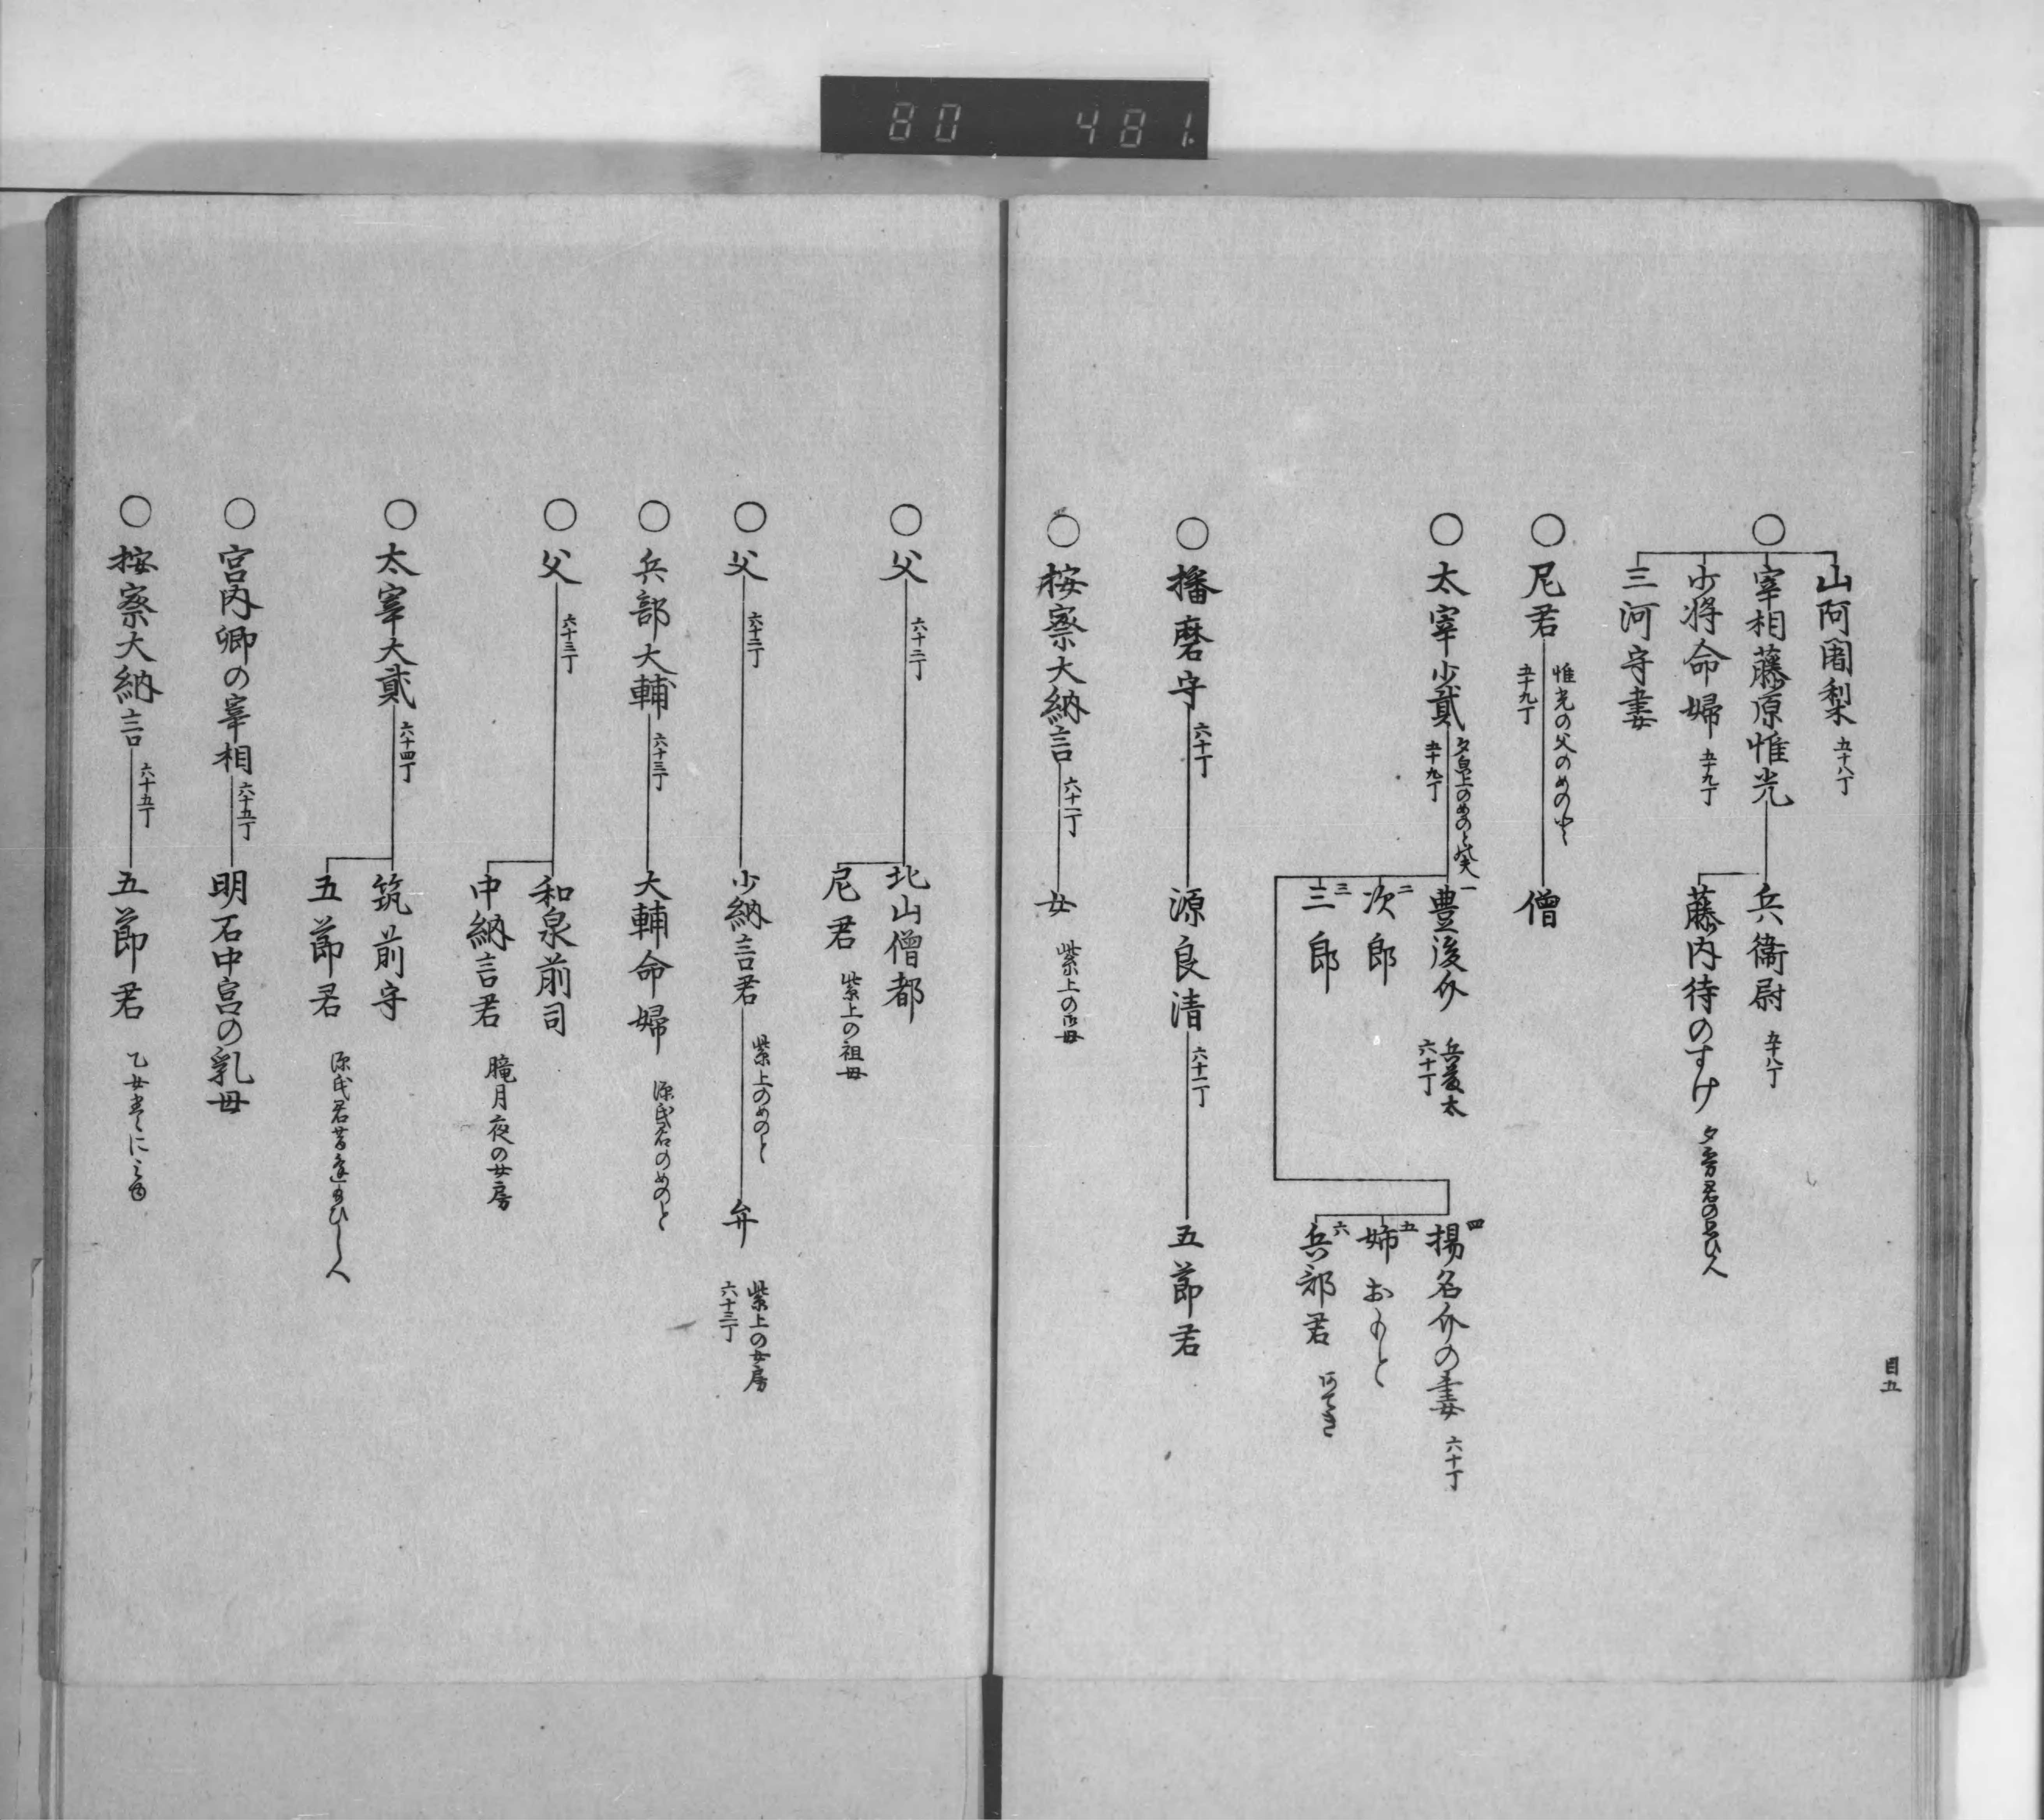 80 481.
目五
山阿闍梨 五十八丁
○宰相藤原惟光
兵衞尉 五十八丁
藤内待のすけ 夕霧君の思ひ人
少将命婦 五十九丁
三河守妻
○尼君 惟光の父のめのと
五十九丁
僧
○太宰少貳 夕皃上のめのと
五十九丁
一 豊後介 兵藤太
六十丁
二 次郎
三 三郎
四 揚名介の妻 六十丁
五 姉おもと
六 兵部君 あてき
○播磨守 六十丁
源良清 六十一丁
五節君
○按察大納言 六十一丁
女 紫上の母
○父 六十二丁
北山僧都
尼君 紫上の祖母
○父 六十二丁
少納言君 紫上のめのと
弁 紫上の女房
六十三丁
○兵部大輔 六十三丁
大輔命婦 源氏君のめのと
○父 六十三丁
和泉前司
中納言君 朧月夜の女房
○太宰大貳 六十四丁
筑前守
五節君 源氏君昔逢ひし人
○宮内卿の宰相 六十五丁
明石中宮の乳母
○按察大納言 六十五丁
五節君 乙女